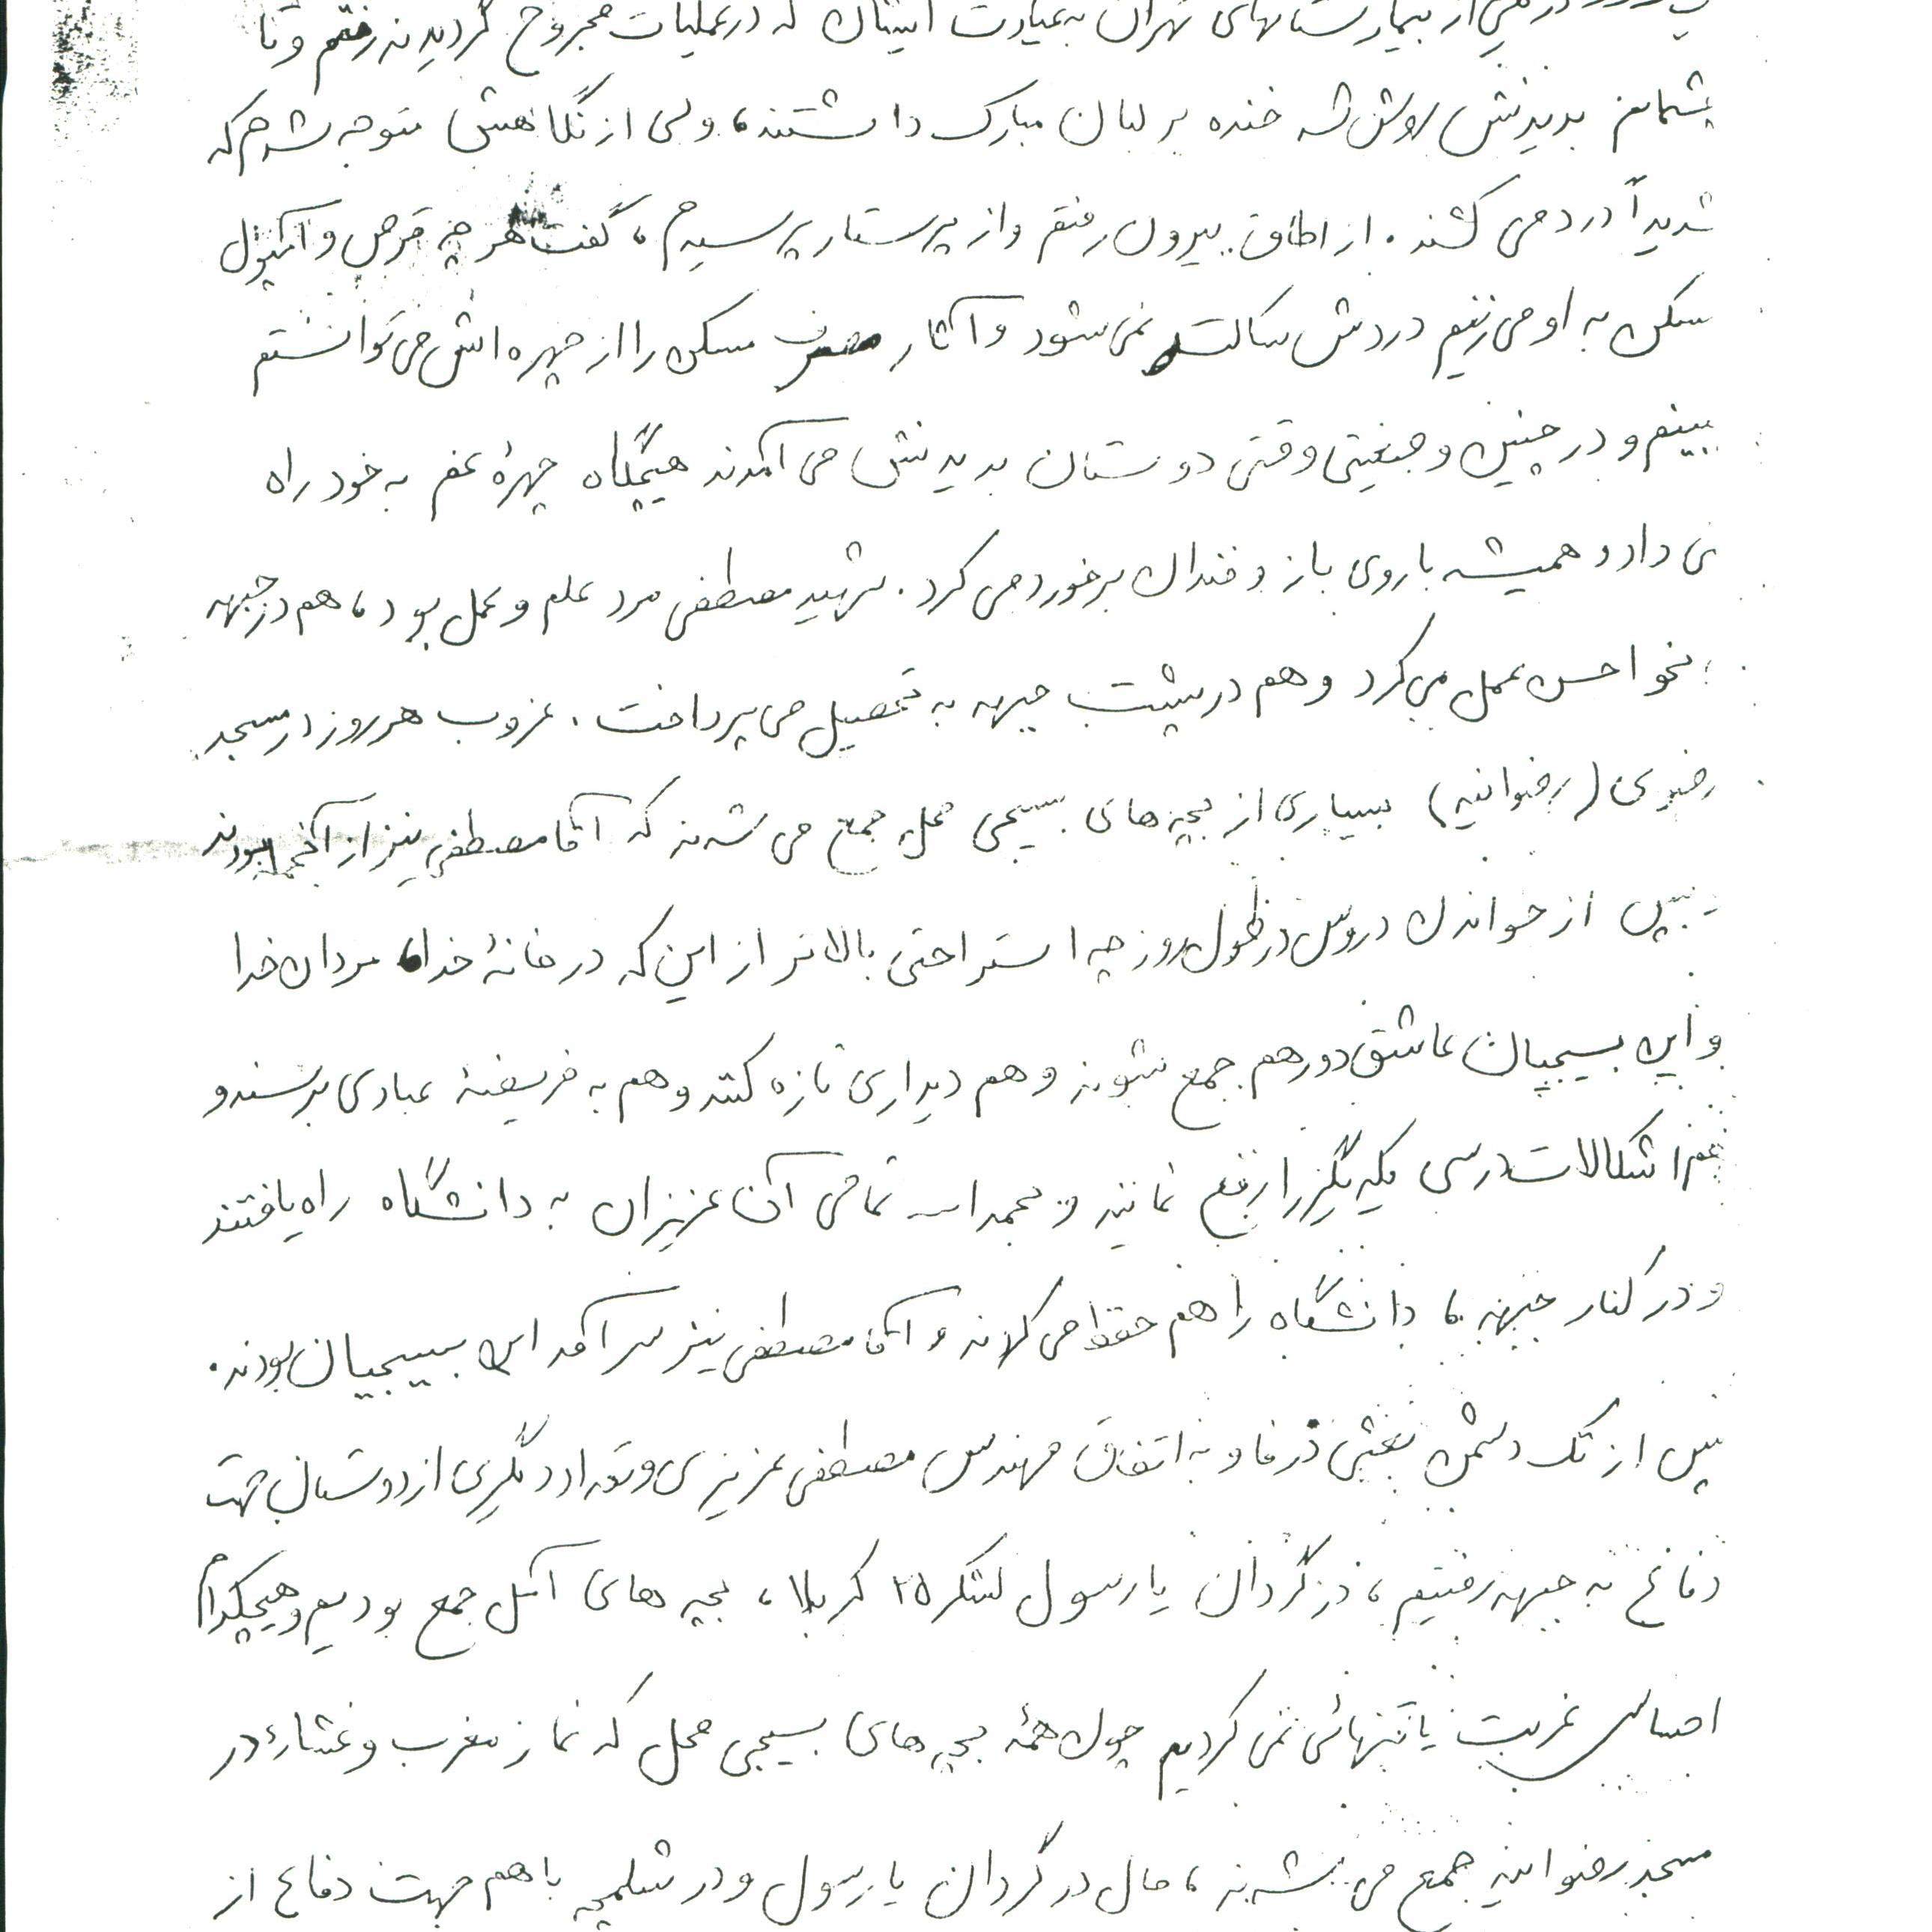 در یکی از بیمارستانهای تهران به عیادت ایشان که در عملیات مجروح گردیدند رفتم وقتا
چشمانم بدیدنش روشن شد خنده بر لبان مبارک داشتند، ولی از نگاهش متوجه شدم که
شدیداً درد می کشند. از اطاق بیرون رفتم و از پرستار پرسیدم، گفت هر چه قرص و آمپول
مسکن به او می زنیم دردش ساکت نمی شود و آثار مصرف مسکن را از چهره اش می توانستم
ببینم و در چنین وضعیتی وقتی دوستان بدیدنش می آمدند هیچگاه چهرهٔ غم به خود راه
نمی داد و همیشه با روی باز و خندان برخورد می کرد. شهید مصطفی مرد علم و عمل بود، هم در جبهه
به نحو احسن عمل می کرد و هم در پشت جبهه به تحصیل می پرداخت. غروب هر روز در مسجد
رضوی (رضوانیه) بسیاری از بچه های بسیجی محل جمع می شدند که آقا مصطفی نیز از آنجمله بودند
پس از خواندن دروس در طول روز چه استراحتی بالاتر از این که در خانهٔ خدا، مردان خدا
و این بسیجیان عاشق دور هم جمع شوند و هم دیداری تازه کنند و هم به فریضهٔ عبادی برسند و
هم اشکالات درسی یکدیگر را رفع نمایند و بحمداله تمامی آن عزیزان به دانشگاه راه یافتند
و در کنار جبهه، دانشگاه را هم حفظ می کردند و آقا مصطفی نیز سرآمد این بسیجیان بودند.
پس از تک دشمن بعثی در فاو به اتفاق مهندس مصطفی عزیزی و تعداد دیگری از دوستان جهت
دفاع به جبهه رفتیم، در گردان یا رسول لشکر ۲۵ کربلا، بچه های آمل جمع بودیم و هیچکدام
احساس غربت یا تنهائی نمی کردیم چون همهٔ بچه های بسیجی محل که نماز مغرب و عشاء در
مسجد رضوانیه جمع می شدند، حال در گردان یا رسول و در شلمچه با هم جهت دفاع از